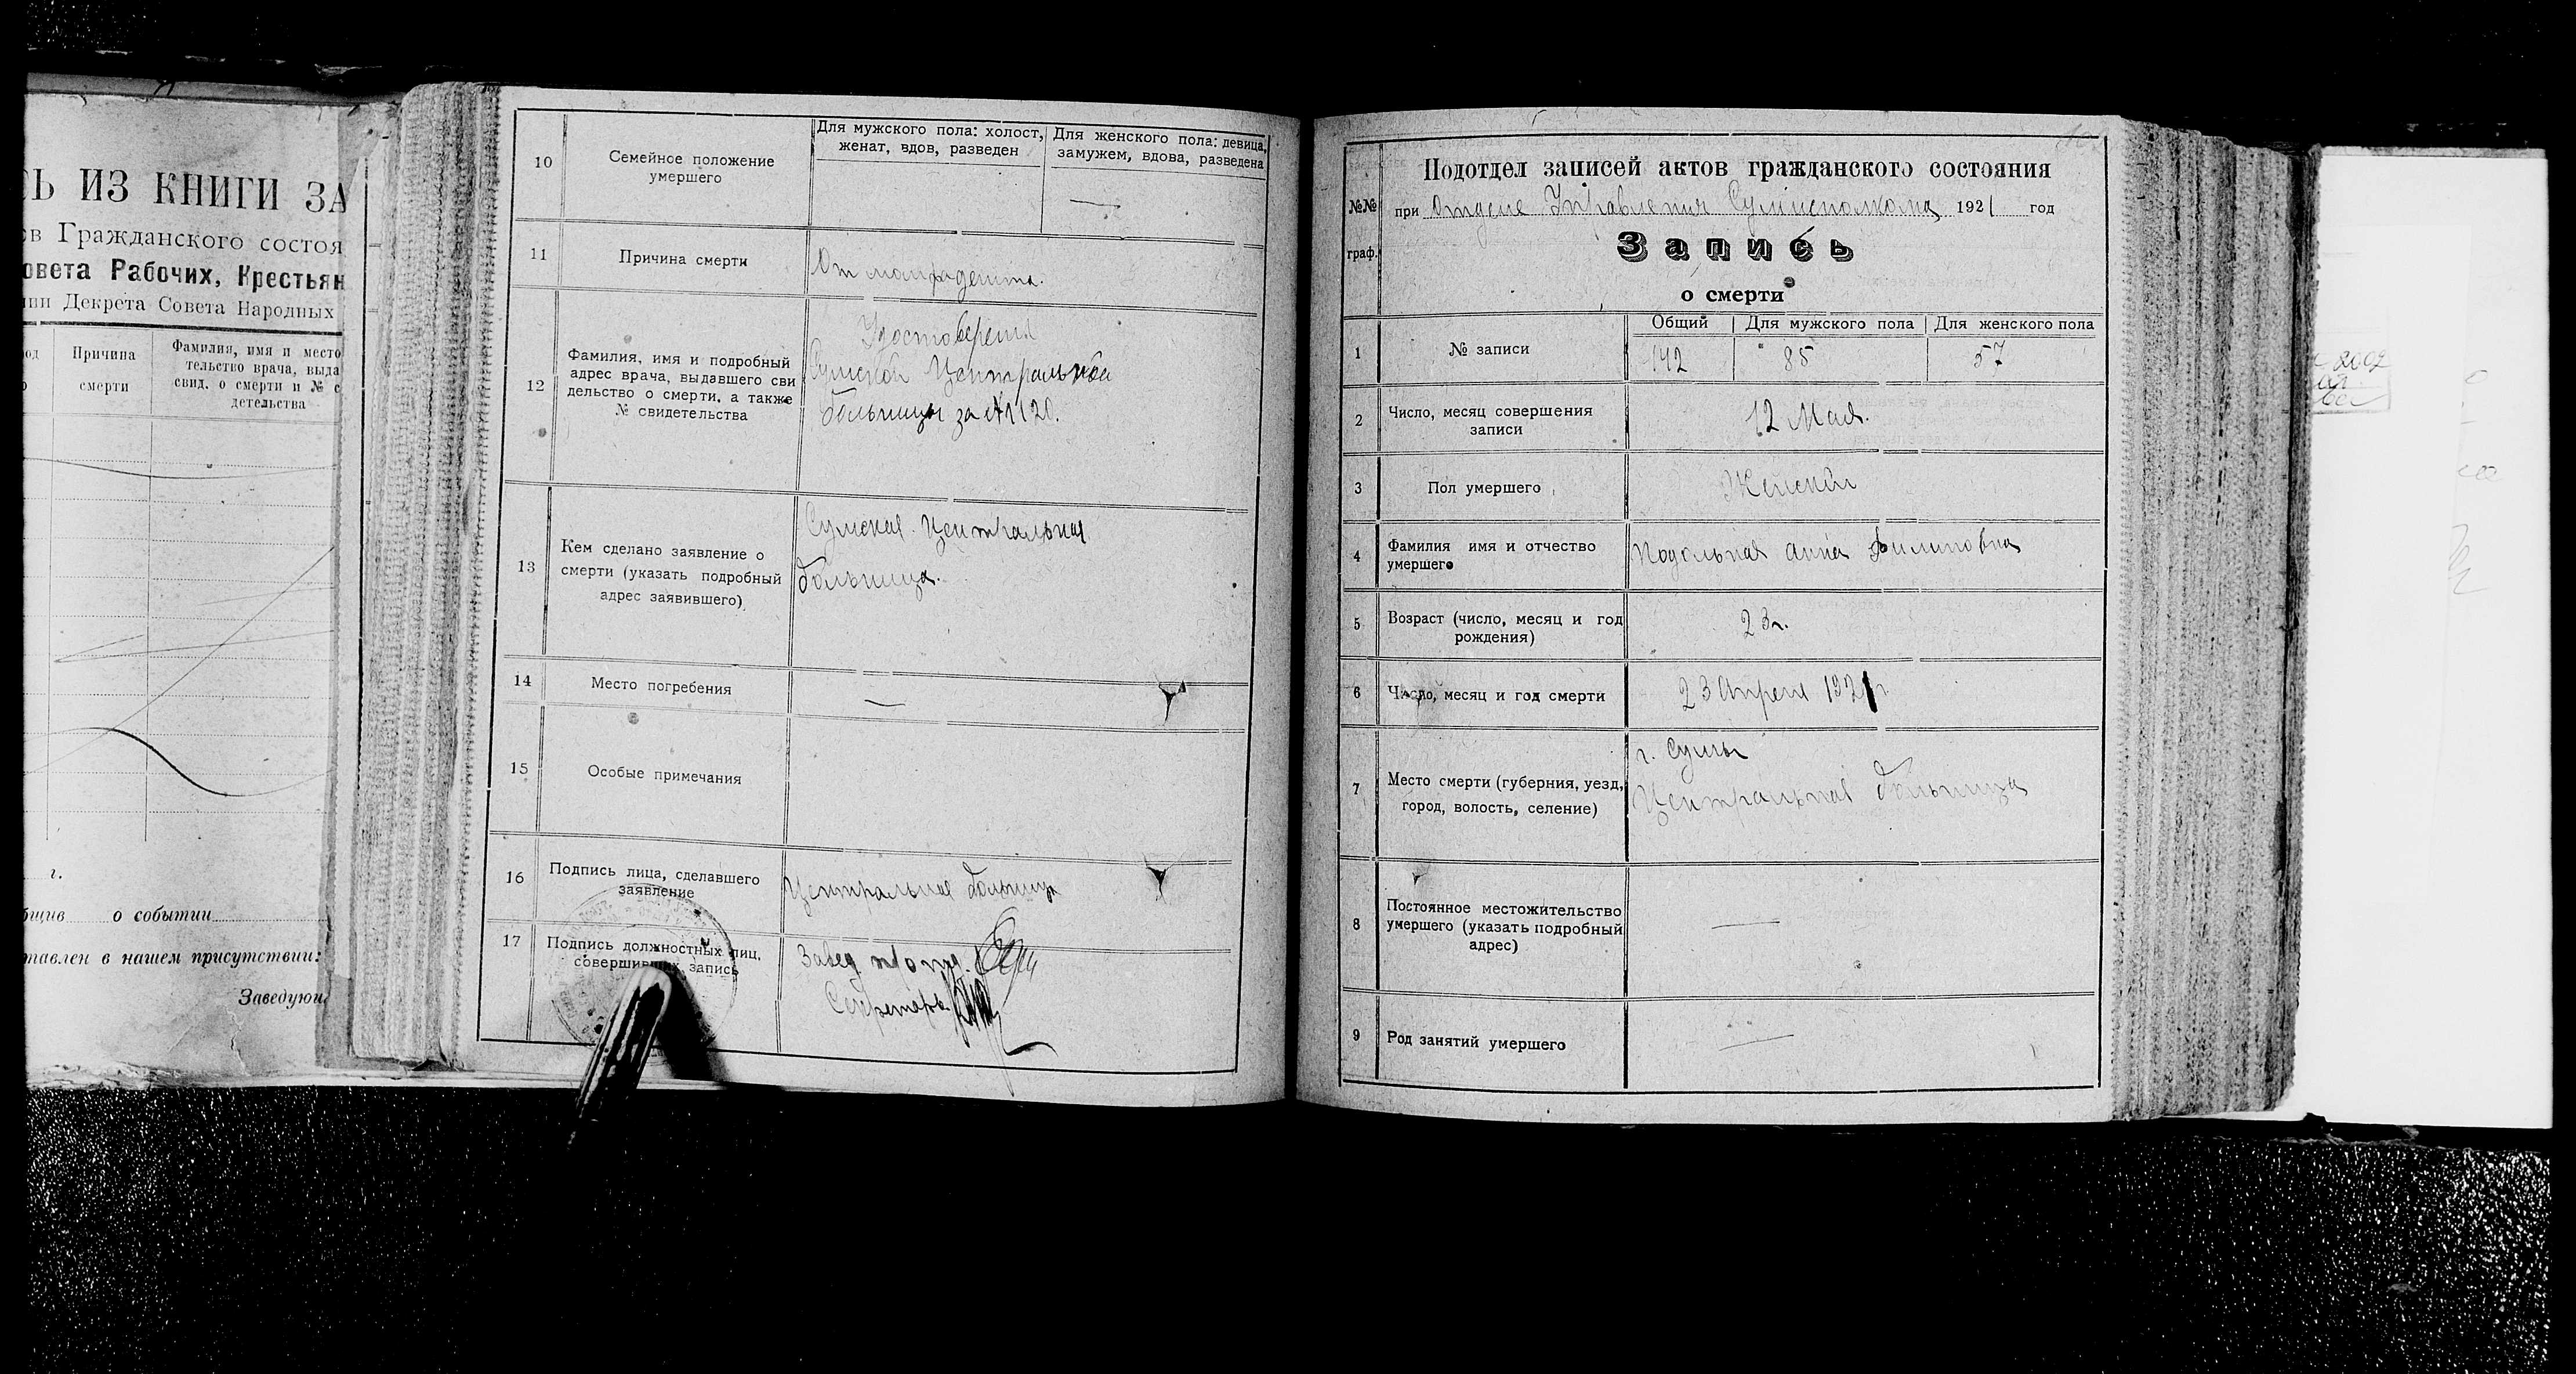 СЬ ИЗ КНИГИ ЗА
ов Гражданского состоя
овета Рабочих, Крестьян
нии Декрета Совета Народных
Причина
смерти
Фамилия, имя и место
тельство врача, выда
свид. о смерти и № с
детельства
г.
бщив о событии
тавлен в нашем присутствии:
Заведующ
10
Семейное положение
умершего
Для мужского пола: холост,
женат, вдов, разведен
Для женского пола: девица,
замужем, вдова, разведена
—
11
Причина смерти
От
12
Фамилия, имя и подробный
адрес врача, выдавшего сви
дельство о смерти, а также
№ свидетельства
Удостоверения
Сумской Центральной
больницы за №1120.
13
Кем сделано заявление о
смерти (указать подробный
адрес заявившего)
Сумская Центральная
больница.
14
Место погребения
—
15
Особые примечания
16
Подпись лица, сделавшего
заявление
Центральная больница
17
Подпись должностных лиц,
совершивших запись
Завед. п/отд.
Секретарь
№№
граф.
Подотдел записей актов гражданского состояния
при Отделе Управления Сумисполкома 1921 год
Запись
о смерти
1
№ записи
Общий
Для мужского пола
Для женского пола
142
85
57
2
Число, месяц совершения
записи
12 Мая.
3
Пол умершего
Женский
4
Фамилия имя и отчество
умершего
Подольная Анна Филиповна
5
Возраст (число, месяц и год
рождения)
23г.
6
Число, месяц и год смерти
23 Апреля 1921г
7
Место смерти (губерния, уезд,
город, волость, селение)
г. Сумы
Центральная больница
8
Постоянное местожительство
умершего (указать подробный
адрес)
—
9
Род занятий умершего
—
2002